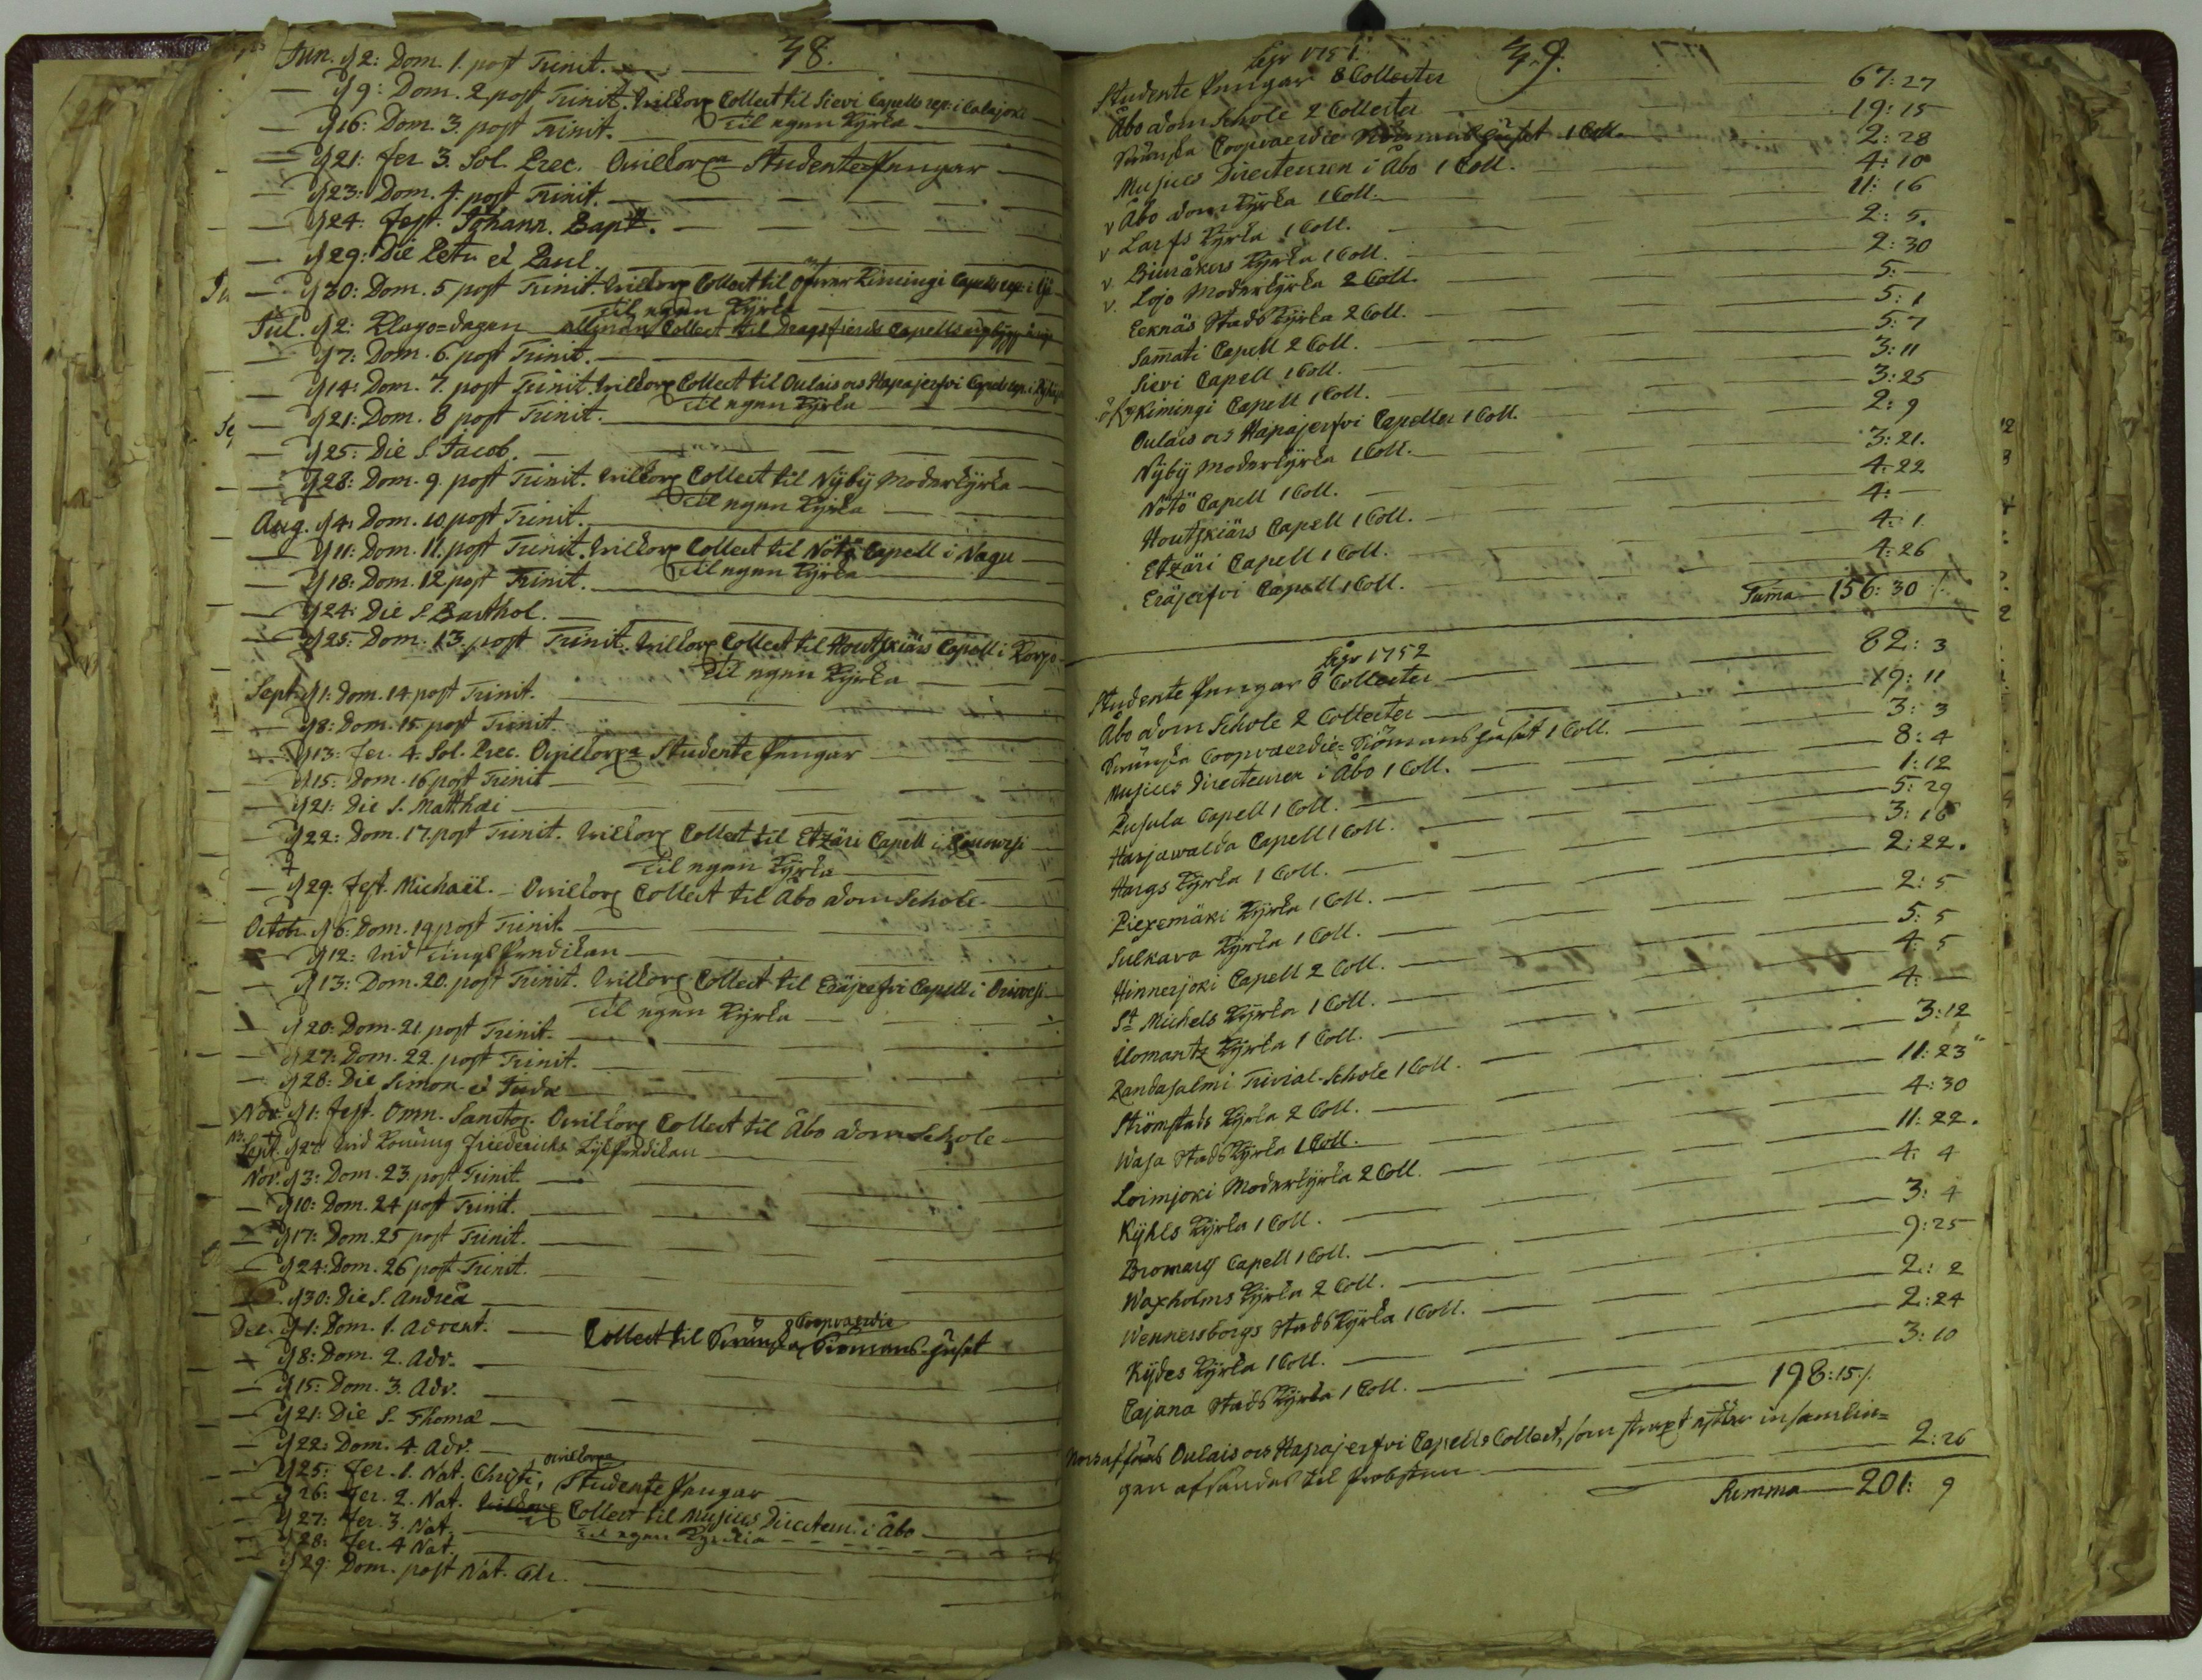 38.
Jun. d. 2: Dom. 1. post Trinit.
d 9: Dom. 2 post Trinit. Collect til Sievi Capells rep: i Calajoki
Til egen Kyrka
d 16: Dom. 3. post Trinit.
d 21: fer 3. Sol. Prec. Studente Pengar
d 23: Dom. 4. post Trinit.
d 24. fest. Johann. Bapt.
d 29: Die Petri et Pauli
d 30: Dom. 5 post Trinit. Collect til öfver Kimingi Capells rep: i Ijå
Til egen Kyrka
Jul. d 2: Klago-dagen allmän Collect til Dragsfierds Capells
d 7: Dom. 6. post Trinit.
d 14: Dom. 7. post Trinit. Collect til Oulais ocs Hapajerfvi Capels rep. i
Til egen Kyrka
d 21: Dom. 8 post Trinit.
d 25: Die S. Jacob.
d 28: Dom. 9. post Trinit. Collect til Nÿbÿ Moderkÿrka
Til egen Kyrka
Aug. d 4: Dom. 10. post Trinit.
d 11: Dom. 11. post Trinit. Collect til Nötö Capell i Nagu
Til egen Kyrka
d 18: Dom. 12 post Trinit.
d 24: Die S. Barthol.
d 25: Dom. 13 post Trinit. Collect til Houtskiärs Capell i Korpo
Til egen Kyrka
Sept. d 1: Dom. 14 post Trinit.
d 8: Dom. 15. post Trinit.
d 13: fer. 4. Sol. Prec. Studente Pengar
d 15: Dom. 16 post Trinit
d 21: Die S. Matthæi
d 22: Dom. 17. post Trinit. Collect til Etzäri Capell i
Til egen Kyrka
d 29: fest. Michaël. Collect til Åbo Dom Schole
Octob. d 6: Dom. 19 post Trinit.
d 12: wid Tings Predikan
d 13: Dom. 20. post Trinit. Collect til Eräjerfvi Capell i Orivesi
Til egen Kyrka
d 20: Dom. 21. post Trinit.
d 27: Dom. 22. post Trinit.
d 28: Die Simon. et Judæ
Nov. d 1: fest. Omn. Sanctor. Collect til Åbo Dom Schole
Sept. d 27 wid Konung Friedericks Lÿkpredikan
Nov. d 3: Dom. 23. post Trinit.
d 10: Dom. 24 post Trinit.
d 17: Dom. 25 post Trinit.
d 24: Dom. 26 post Trinit.
d 30: Die S. Andreæ
Dec. d 1: Dom. 1. Advent.
Coopvaerdie
d 8: Dom. 2. Adv. Collect til Svenska Siömans-huset
d 15: Dom. 3. Adv.
d 21: Die S. Thomæ
d 22: Dom. 4. Adv.
d 25: fer. 1. Nat. Christi, Studente Pengar
d 26: fer. 2. Nat. Collect til Musices Directeur. i Åbo
d 27: fer. 3. Nat. Til egen Kyrckia
d 28: fer. 4 Nat.
d 29: Dom. post Nat. Chr.
39.
för 1751.
Studente Pengar 8 Collecter 67:27
Åbo Dom Schole 2 Collecter 19:15
Svenska Coopvaerdie Siömans huset 1 Coll. 2:28
Musices Directeuren i Åbo 1 Coll. 4:10
v Åbo Dom Kÿrka 1 Coll. 11:16
v Larfs Kÿrka 1 Coll. 2:5.
v Biuråkers Kÿrka 1 Coll. 2:30
v. Lojo Moderkÿrka 2 Coll. 5:—
Ecknäs Stads Kÿrka 2 Coll. 5:1
Sammati Capell 2 Coll. 5:7
Sievi Capell 1 Coll. 3:11
öfv Kimingi Capell 1 Coll. 3:25
Oulais ocs Hapajerfvi Capeller 1 Coll. 2:9
Nÿbÿ Moderkÿrka 1 Coll. 3:21.
Nötö Capell 1 Coll. 4:22
Houtskiärs Capell 1 Coll. 4:—
Etzäri Capell 1 Coll. 4:1
Eräjerfvi Capell 1 Coll. 4:26
Suma 156:30 ⁒
för 1752
Studente Pengar 8 Collecter 82:3
Åbo Dom Schole 2 Collecter 19:11
Svenska Coopvaerdie-Siömans huset 1 Coll. 3:3
Musices Directeuren i Åbo 1 Coll. 8:4
Pusula Capell 1 Coll. 1:12
Harjawalda Capell 1 Coll. 5:29
Hargs Kÿrka 1 Coll. 3:16
Piexemäki Kÿrka 1 Coll. 2:22.
Sulkava Kÿrka 1 Coll. 2:5
Hinnerjoki Capell 2 Coll. 5:5
St Michels Kÿrka 1 Coll. 4:5
Ilomantz Kÿrka 1 Coll. 4:—
Randasalmi Trivial-Schole 1 Coll. 3:12
Strömstads Kÿrka 2 Coll. 11:23
Wasa Stads Kÿrka 1 Coll. 4:30
Loimjoki Moderkÿrka 2 Coll. 11:22.
Kÿhls Kÿrka 1 Coll. 4:4
Bromarf Capell 1 Coll. 3:4
Waxholms Kÿrka 2 Coll. 9:25
Wennersborgs Stads Kÿrka 1 Coll. 2:2
Kÿdes Kÿrka 1 Coll. 2:24
Cajana Stads Kÿrka 1 Coll. 3:10
198:15 ⁒
Oulais ocs Hapajerfvi Capells Collect, som strax efter insamlin-
gen afsändes til Probsten 2:26
Summa 201:9